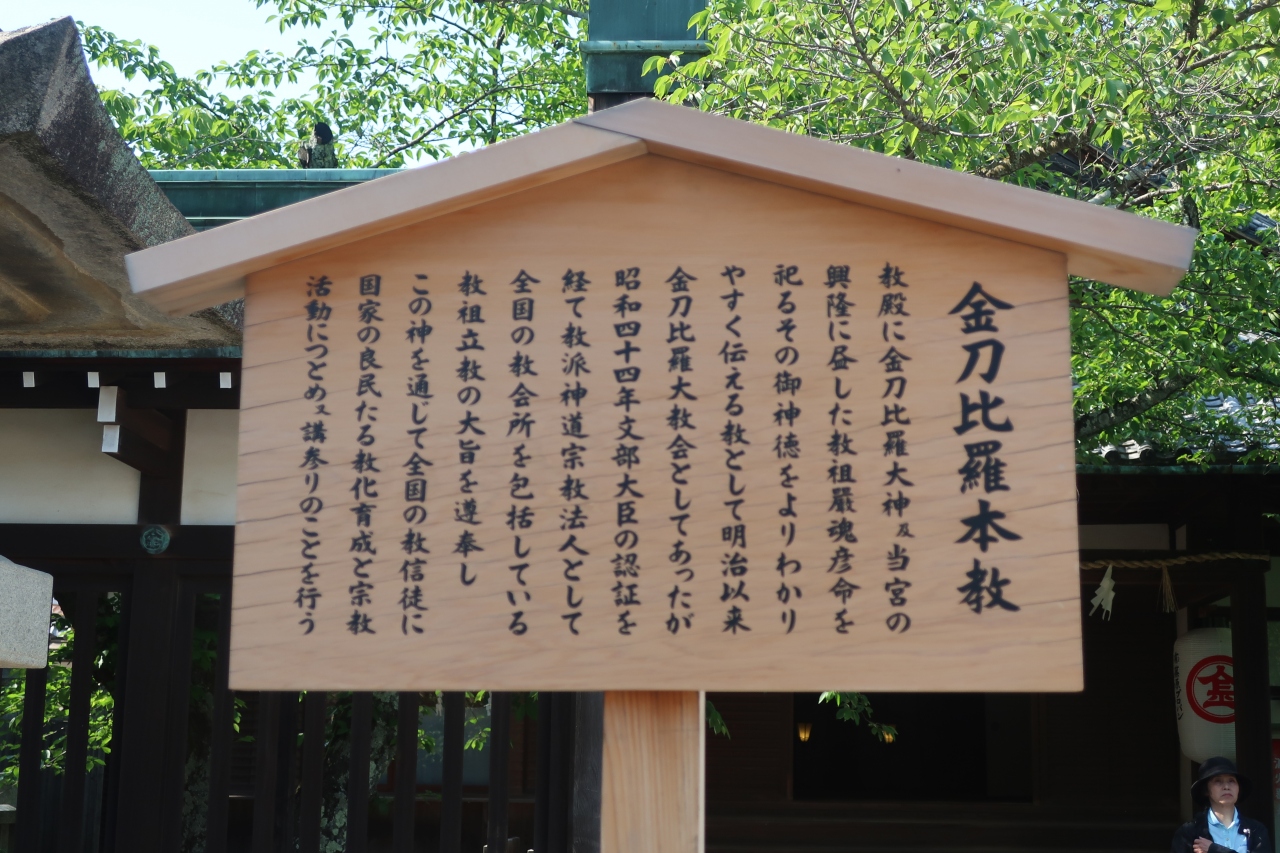 金刀比羅本教
教殿に金刀比羅大神及当宮の
興隆に昼した教祖嚴魂彦命を
祀るその御神徳をよりわかり
やすく伝える教として明治以来
金刀比羅大教会としてあったが
昭和四十四年文部大臣の認証を
経て教派神道宗教法人として
全国の教会所を包括している
教祖立教の大旨を遵奉し
この神を通じて全国の教信徒に
国家の良民たる教化育成と宗教
活動につとめ又講参りのことを行う
金
金